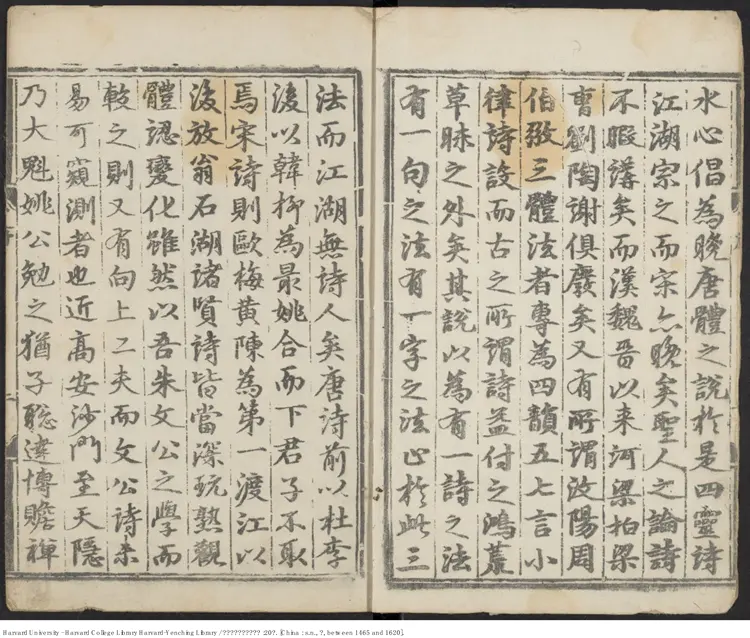 水心倡為晚唐體之說於是四靈詩
江湖宗之而宋亦晚矣聖人之論詩
不暇講矣而漢魏晋以来河梁柏梁
曹劉陶謝俱廢矣又有所謂汶陽周
伯敜三體法者專為四韻五七言小
律詩設而古之所謂詩益付之鴻荒
草昧之外矣其說以為有一詩之法
有一句之法有一字之法止於此三
法而江湖無詩人矣唐詩前以杜李
後以韓栁為最姚合而下君子不取
焉宋詩則歐梅黄陳為第一渡江以
後放翁石湖諸賢詩皆當深玩熟觀
體認變化雖然以吾朱文公之學而
較之則又有向上工夫而文公詩未
易可窺測者也近髙安沙門至天隱
乃大魁姚公勉之猶子聡達博贍禅
Harvard University - Harvard College Library Harvard-Yenching Library / ?????????? :20?. [China : s.n., ?, between 1465 and 1620].